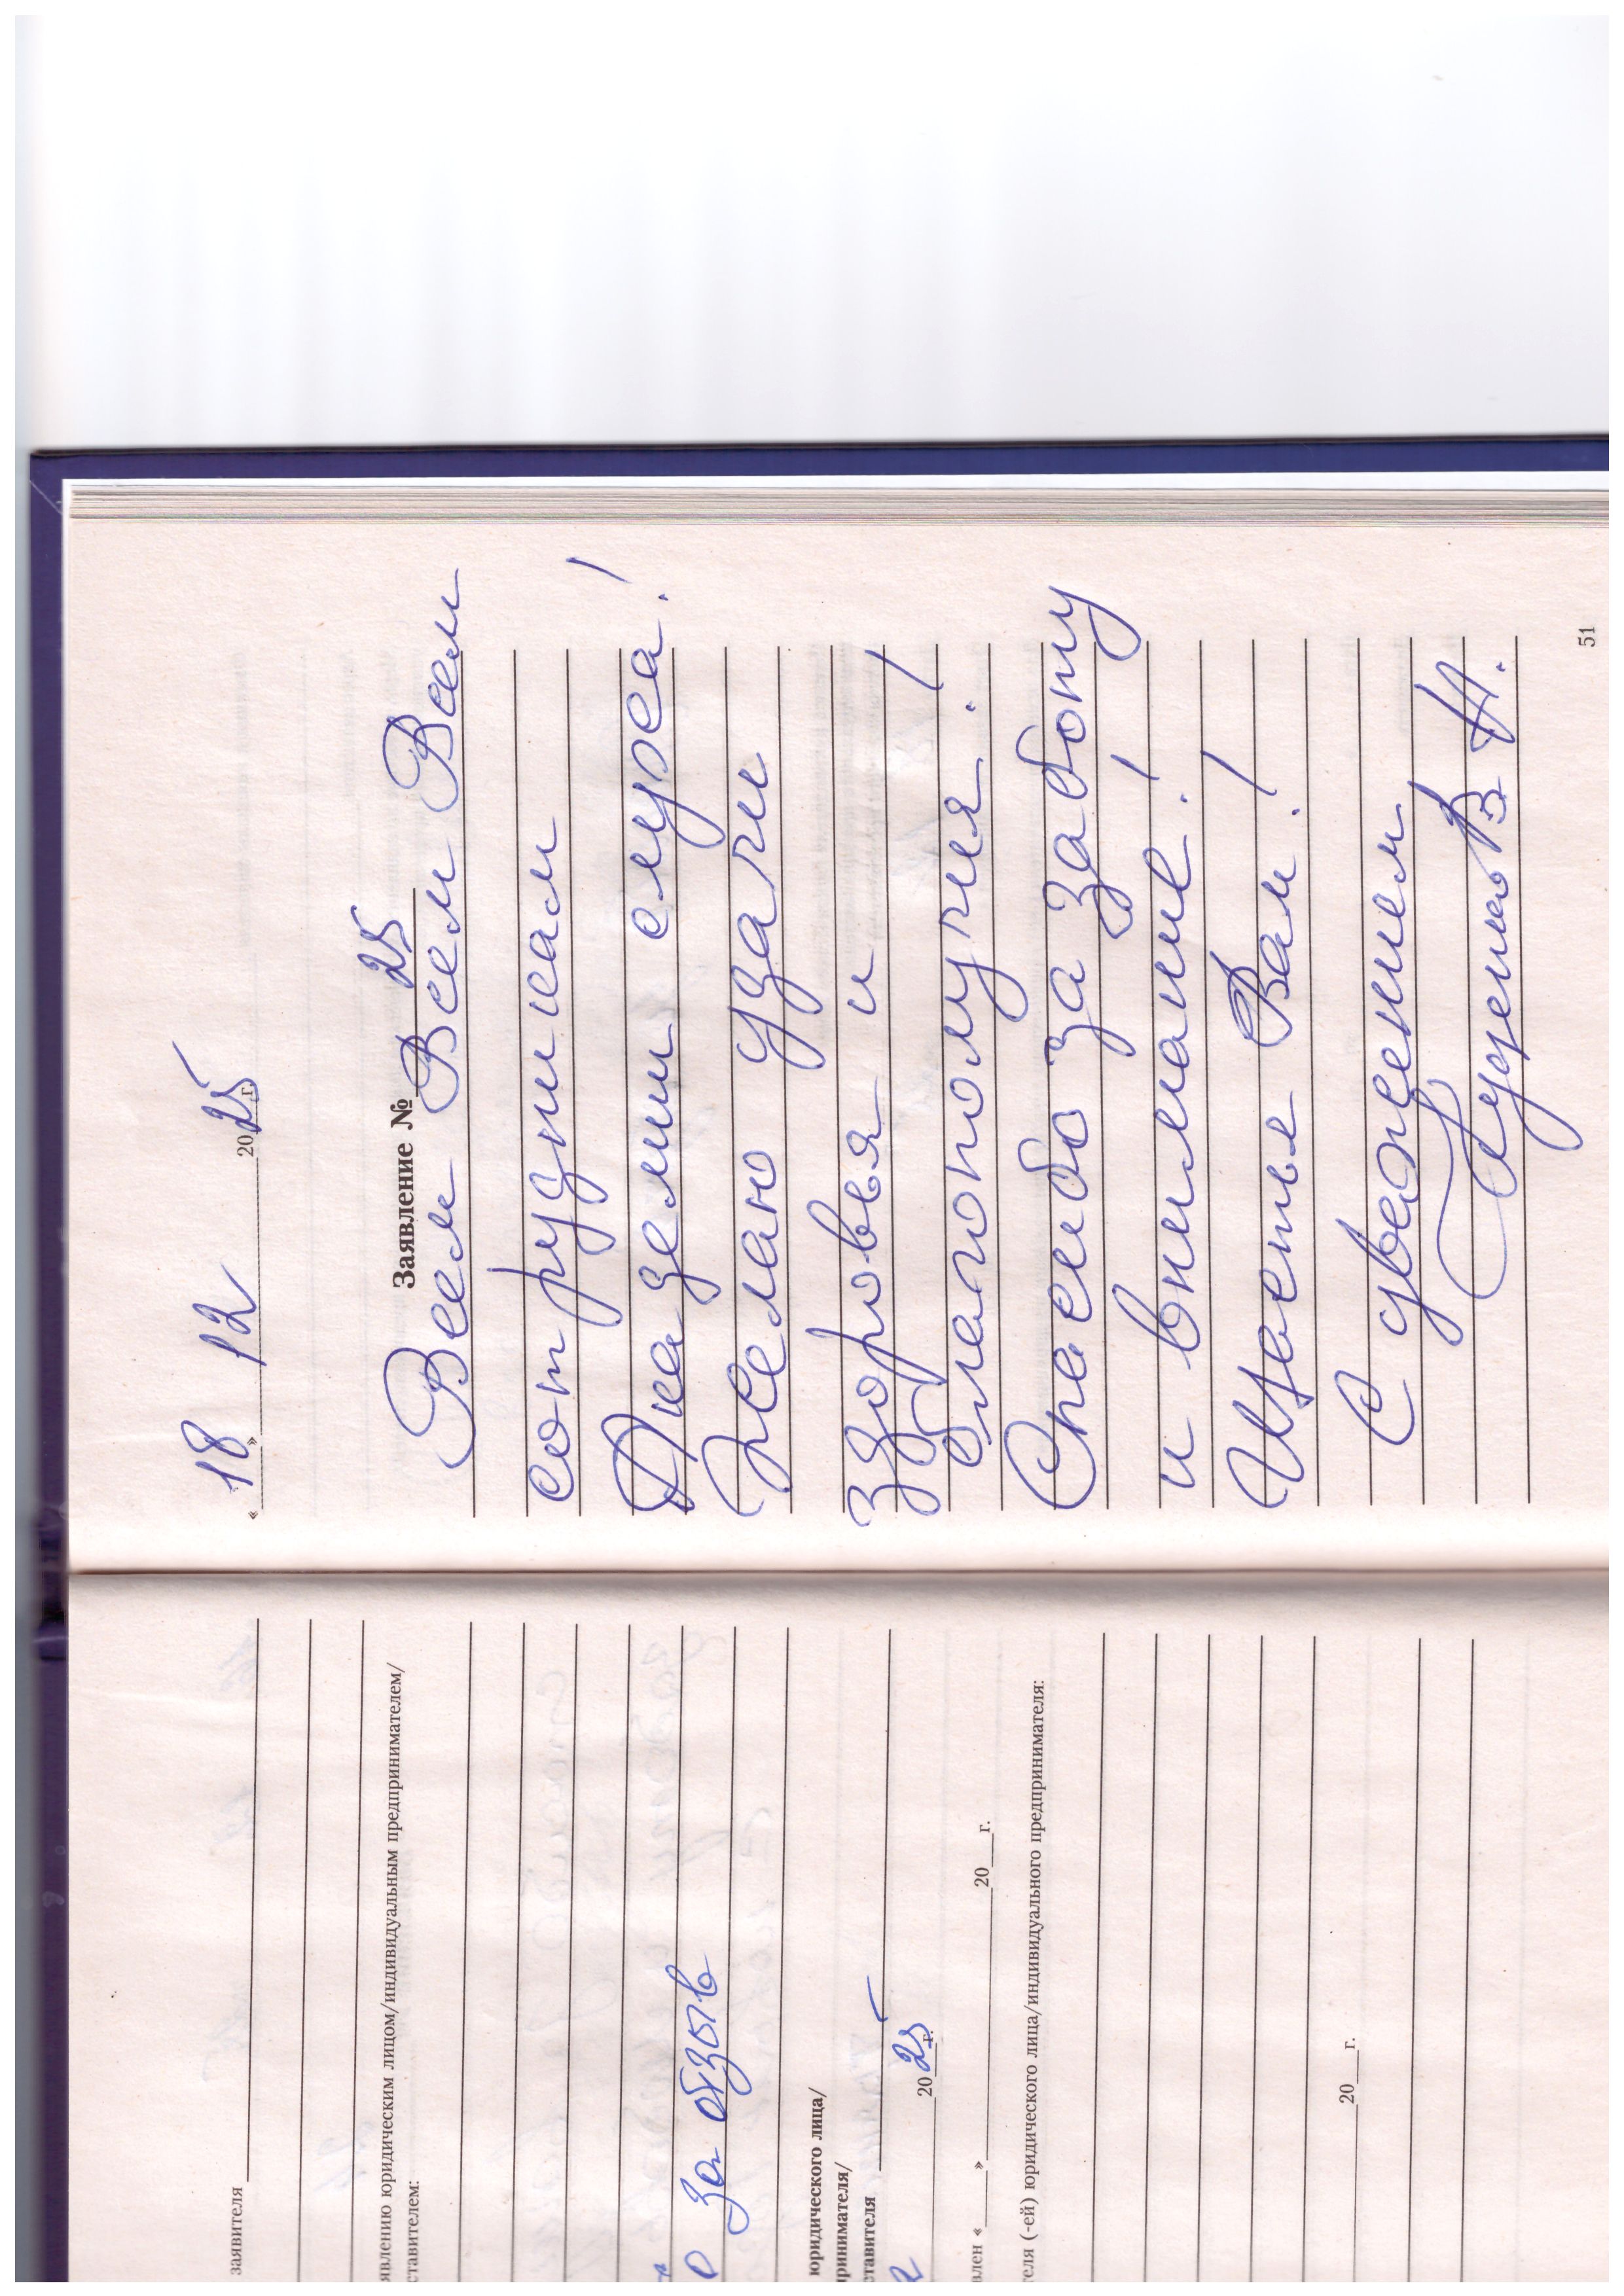 заявителя
явлению юридическим лицом/индивидуальным предпринимателем/
ставителем:
о за отзыв
юридического лица/
принимателя/
ставителя
2025 г.
влен « » 20 г.
теля (-ей) юридического лица/индивидуального предпринимателя:
20 г.
« 18 » 12 2025 г.
Заявление № 25
Всем Всем Всем Всем
сотрудникам
Академии слуха!
Желаю удачи
здоровья и
благополучия!
Спасибо за заботу
и внимание!
Счастья Вам!
С уважением
В. Н.
51